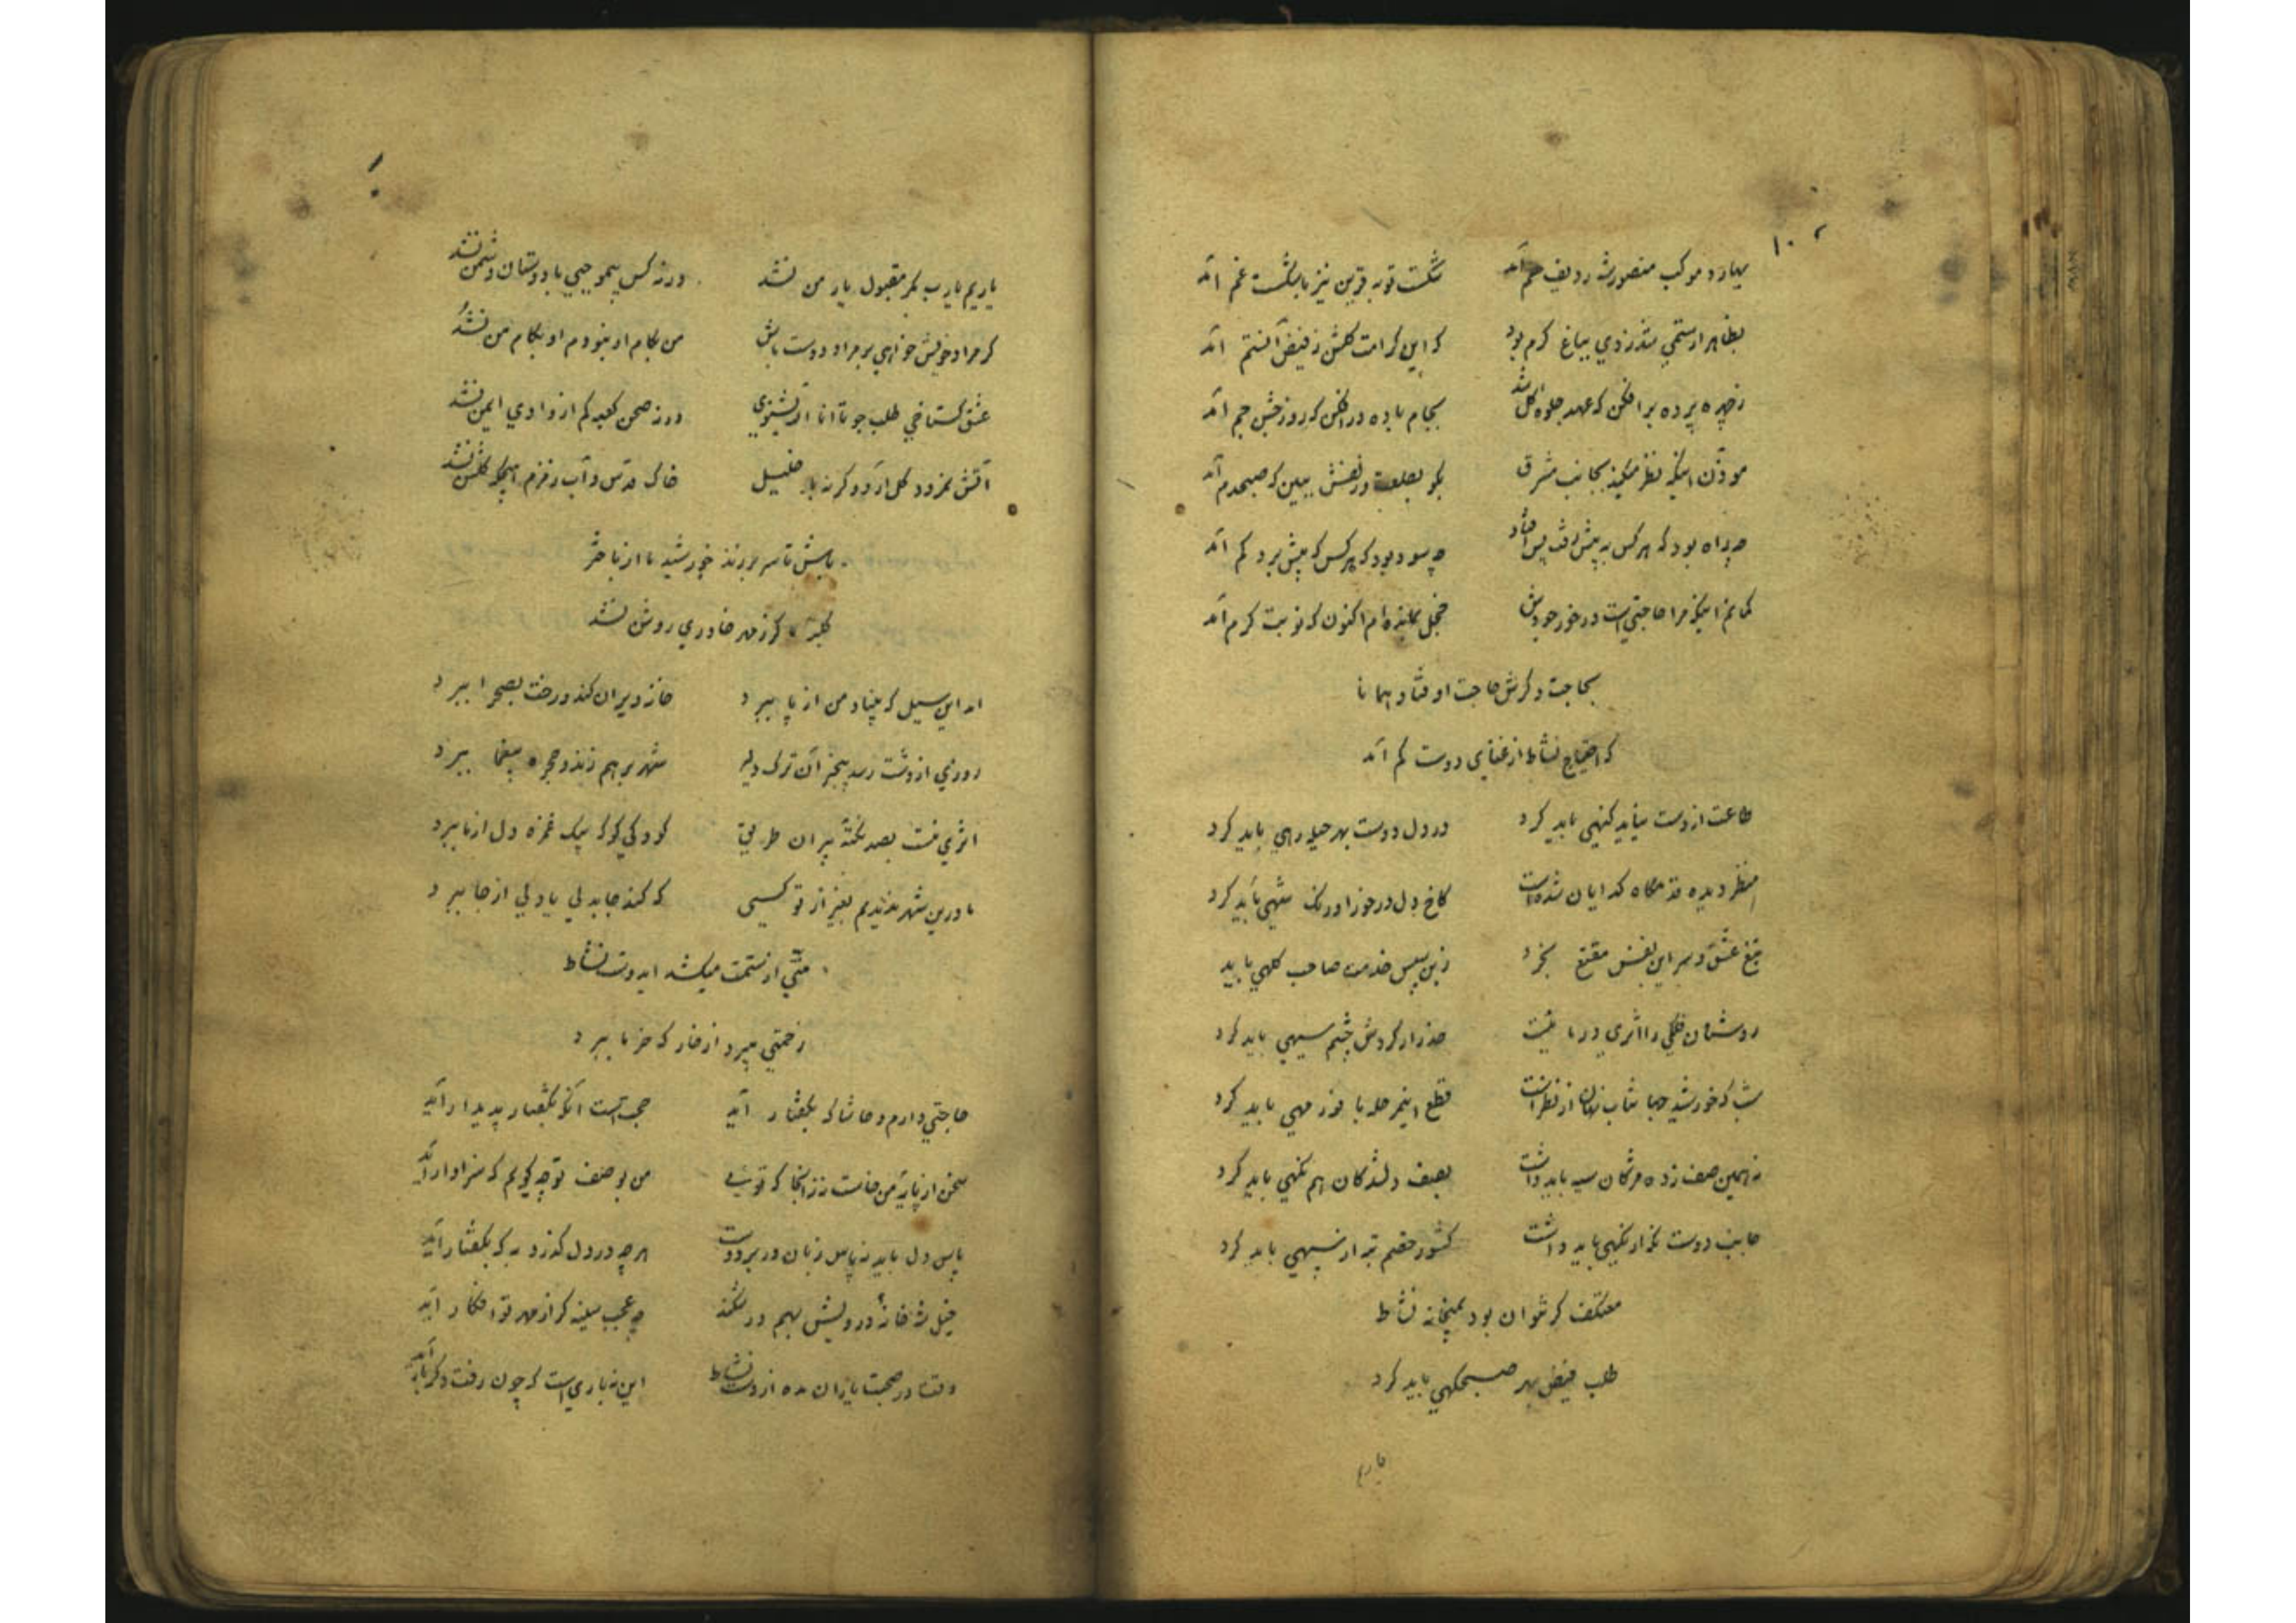 ۱۰۲
بهار و موکب منصورش ردیف هم آمد شکست توبه قرین نیز با شکست غم آمد
بظاهر ار ستمی شد ز دی بباغ کرم بود که این کرامت گلشن ز فیض آن ستم آمد
ز چهره پرده برافکن که عهد جلوه گل شد بجام باده درافکن که روز جشن جم آمد
موذن اینکه نظر میکند بجانب مشرق بگو بطلعت و زلفش ببین که صبحدم آمد
چه راه بود که هر کس به پیش رفت پس افتاد چه سود بود که هر کس که پیش برد کم آمد
گمانم اینکه مرا حاجتی است در خور جودش خجل بمانده‌ام اکنون که نوبت کرم آمد
بحاجت دگرش حاجت اوفتاد همانا
که احتیاج نشاط از غنای دوست کم آمد
طاعت از دست نیاید گنهی باید کرد در دل دوست بهر حیله رهی باید کرد
منظر دیده قدمگاه گدایان شده است کاخ دل در خور اورنگ شهی باید کرد
تیغ عشق و سر این نفس مقنع بخرد زین سپس خدمت صاحب کلهی باید
روشنان فلکی را اثری در ما نیست حذر از گردش چشم سیهی باید کرد
شب که خورشید جهانتاب نهان از نظر است قطع این مرحله با نور مهی باید کرد
نه همین صف زده مژگان سیه باید داشت بصف دلشدگان هم نگهی باید کرد
جانب دوست نگه از نگهی باید داشت کشور خصم تبه از سپهی باید کرد
معتکف گر نتوان بود بمیخانه نشاط
طلب فیض بهر صبحگهی باید کرد
یاریم
یاریم یارب مگر مقبول یار من نشد ورنه کس بیموجبی با دوستان دشمن نشد
گر مراد خویش خواهی بر مراد دوست باش من بکام او نبودم او بکام من نشد
عشق گستاخی طلب جو تا انا الله بشنوی ورنه صحن کعبه کم از وادی ایمن نشد
آتش نمرود گل آرد و گرنه با خلیل خاک قدس و آب زمزم گلشن نشد
باش تا سر برزند خورشید ما از باختر
گر ز مهر خاوری روشن نشد
اه این سیل که بنیاد من از پا ببرد خانه ویران کند و رخت بصحرا ببرد
روزی از دشت رسد بیخبر آن ترک دلیر شهر بر هم زند و حجره بیغما ببرد
اثری نیست بصد نکته پیران طریق کودکی کو که بیک غمزه دل از ما ببرد
ما درین شهر ندیدیم بغیر از تو کسی که کند جا بدلی یا دلی از جا ببرد
منتی از ستمت میکشد ایدوست نشاط
زحمتی میبرد از خار که خرما ببرد
حاجتی دارم و حاشا که بگفتار آید حجبت است آنکه بگفتار پدیدار آید
سخن از پایه من خاست نز آنجا که توئی من بوصف تو چه گویم که سزاوار آید
پاس دل باید نه پاس زبان در بر دوست هر چه در دل گذرد به که بگفتار آید
خیل شه خانه درویش بهم در شکند چه عجب سینه گر از مهر تو افکار آید
وقت در صحبت یاران مده از دست نشاط این نه یاری است که چون رفت دگر بار آید